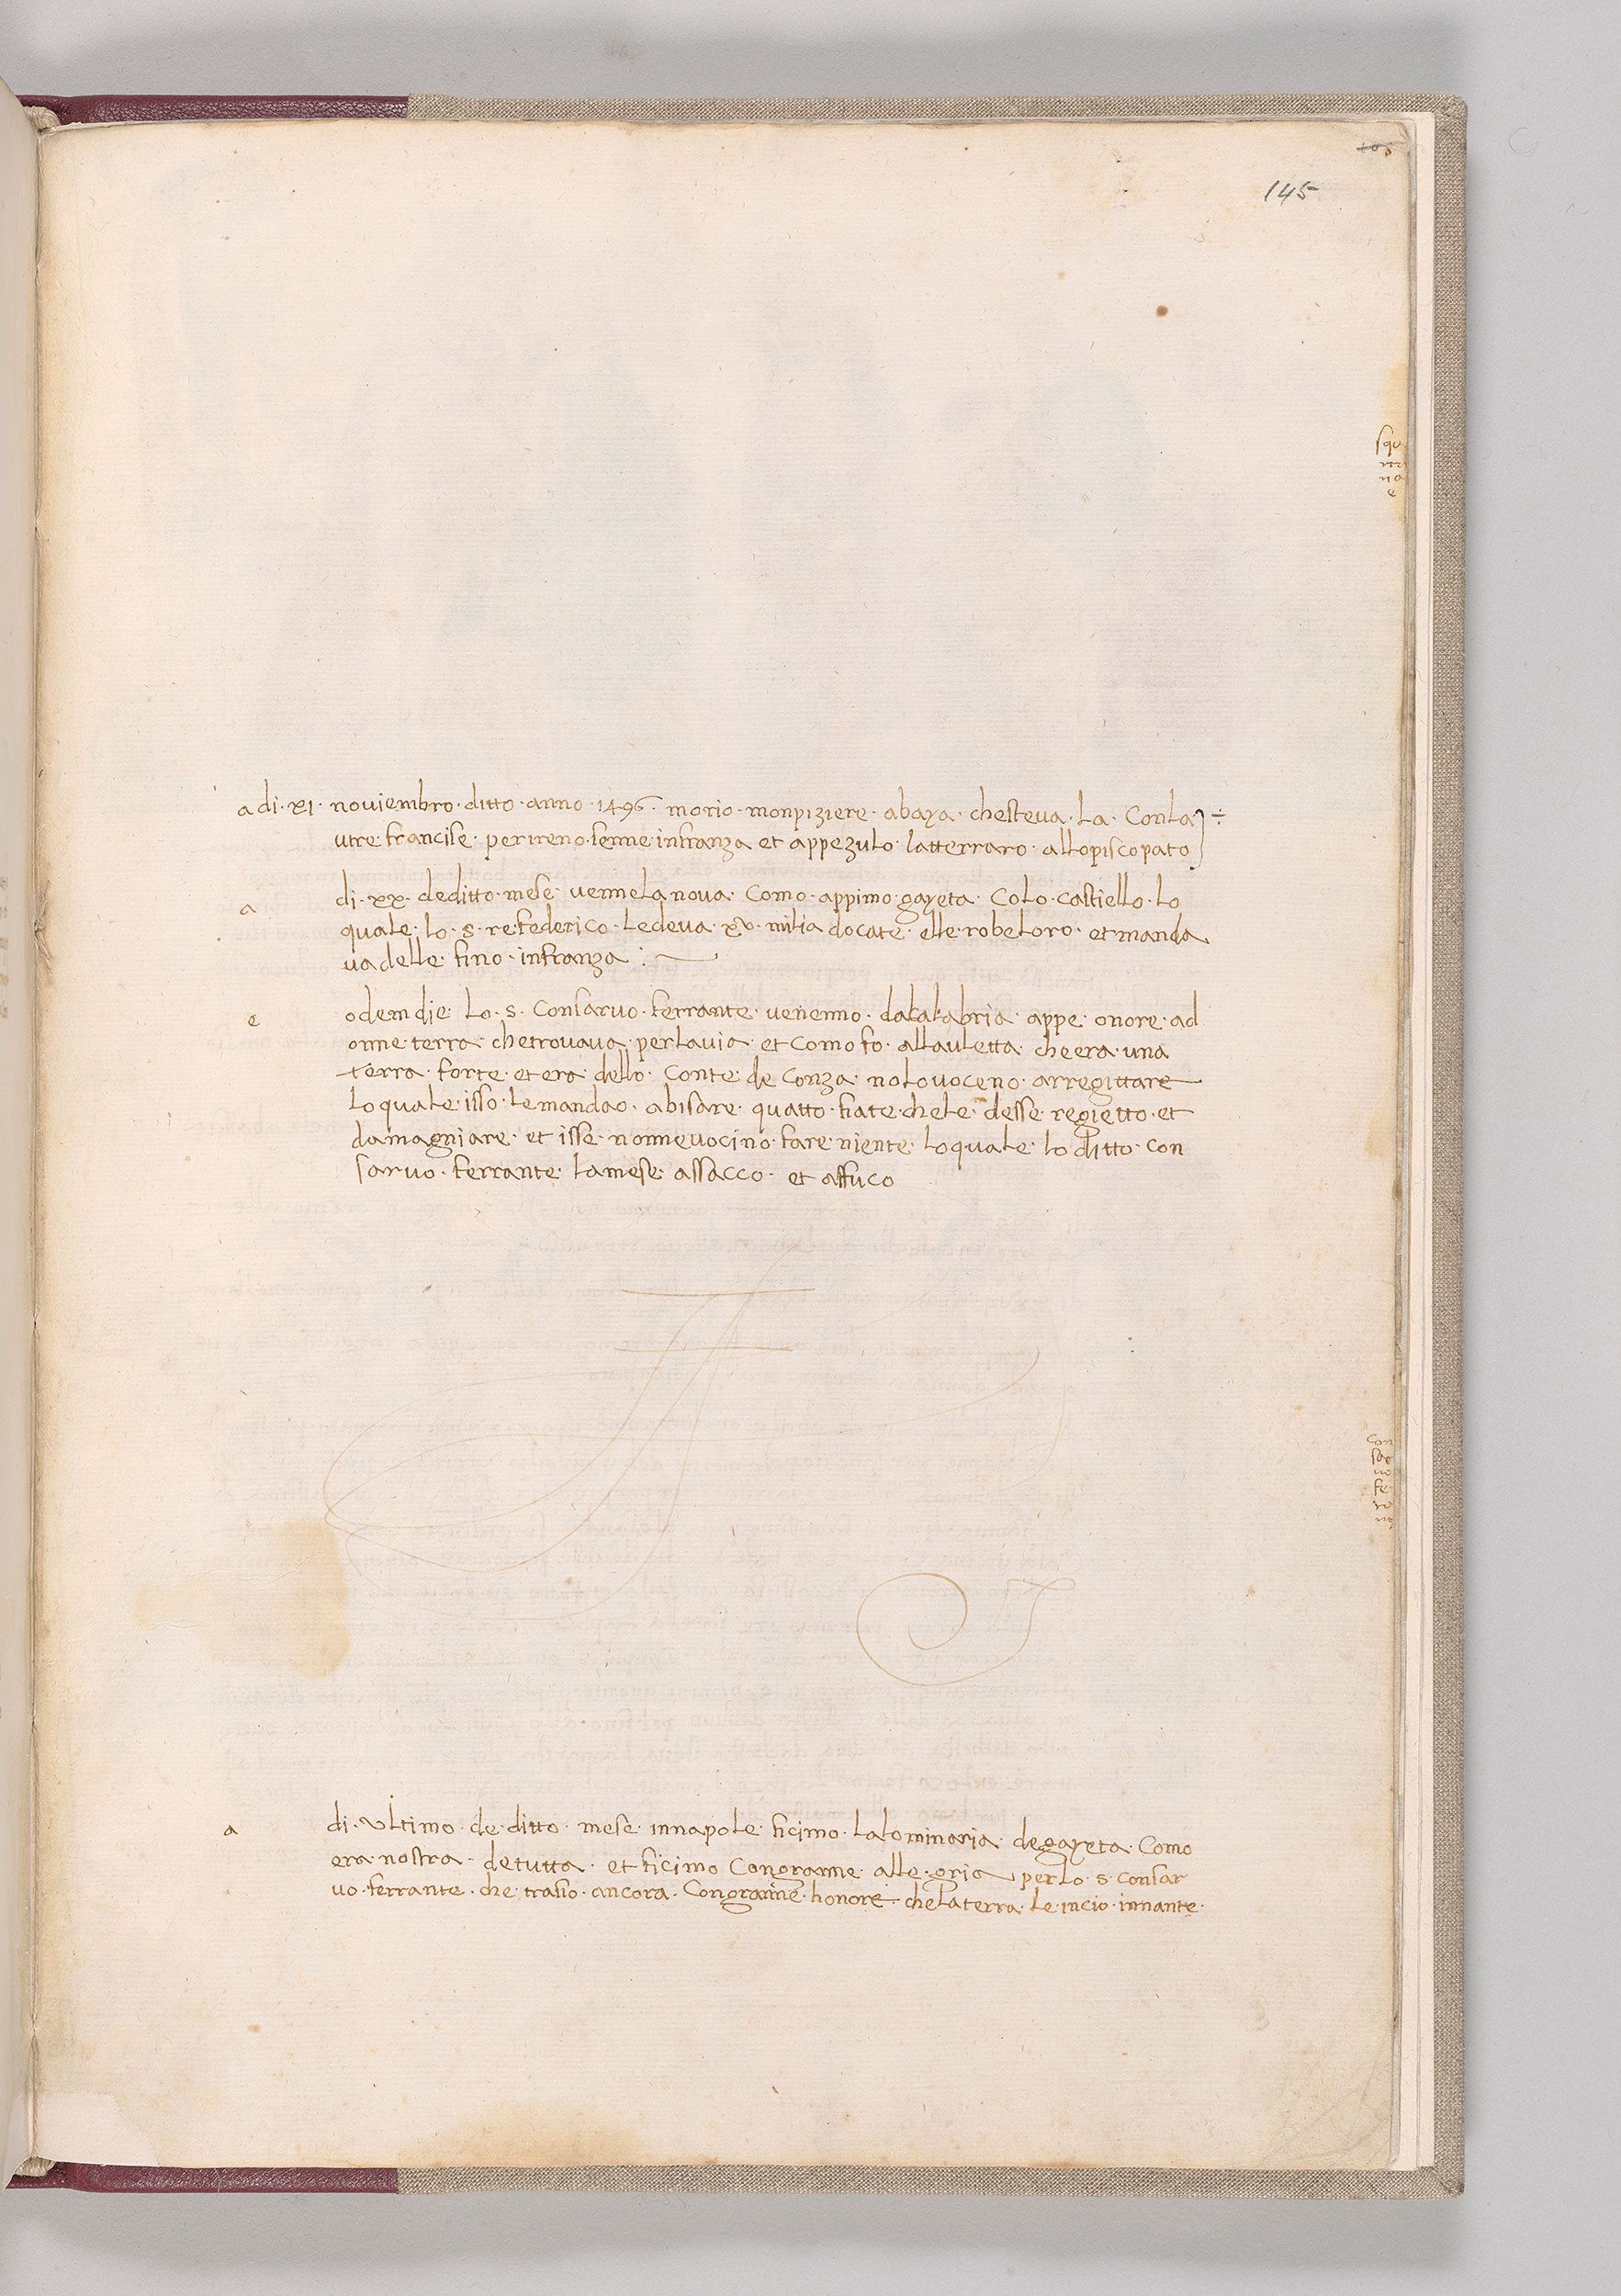 145
squ
na
e
a di · xi · noviembro · ditto · anno · 1496 · morio · monpiziere · abaya · chesteva · la · Conla
utre francise · perireno · senne infranza et appezulo · latterraro · allopiscopato
a di · xx · deditto · mese · venne la nova · Como · appimo · gayeta · Colo · castiello · lo
quale · lo · s · re federico · ledeva · xv · milia docate · elle robe loro · et manda
va delle fino · infranza
e odem die lo · s · Consarvo · ferrante · venenno · dacalabria · appe · onore · ad
onne · terra · chetrovava · perlavia · et Como fo · allauletta · che era · una
terra · forte · et era · dello · Conte · de Conza · nolovoceno · arregittare
lo quale · isso · lemandao · abisare · quatto · fiate · chele · desse · regietto · et
damagniare · et isse · nonnevocino · fare · niente · loquale · lo ditto · con
sarvo · ferrante · lamese · assacco · et affuco
con
sar
vo
fe
ra
nt
a di · ultimo · de · ditto · mese · innapole · ficimo · lalominaria · degayeta · Como
era · nostra · de tutta · et ficimo Congranne · alle · gria perlo · s · consar
vo · ferrante · che trasio · ancora · Congranne · honore · chelaterra · le · incio · innante ·